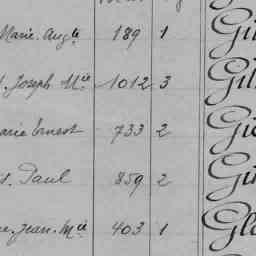 Marie-Augte 189 1 Gi
Joseph Mie 1012 3 Gil
Marie Ernest 733 2 Gi
Paul 859 2 Gi
Jean-Mie 403 1 Gl